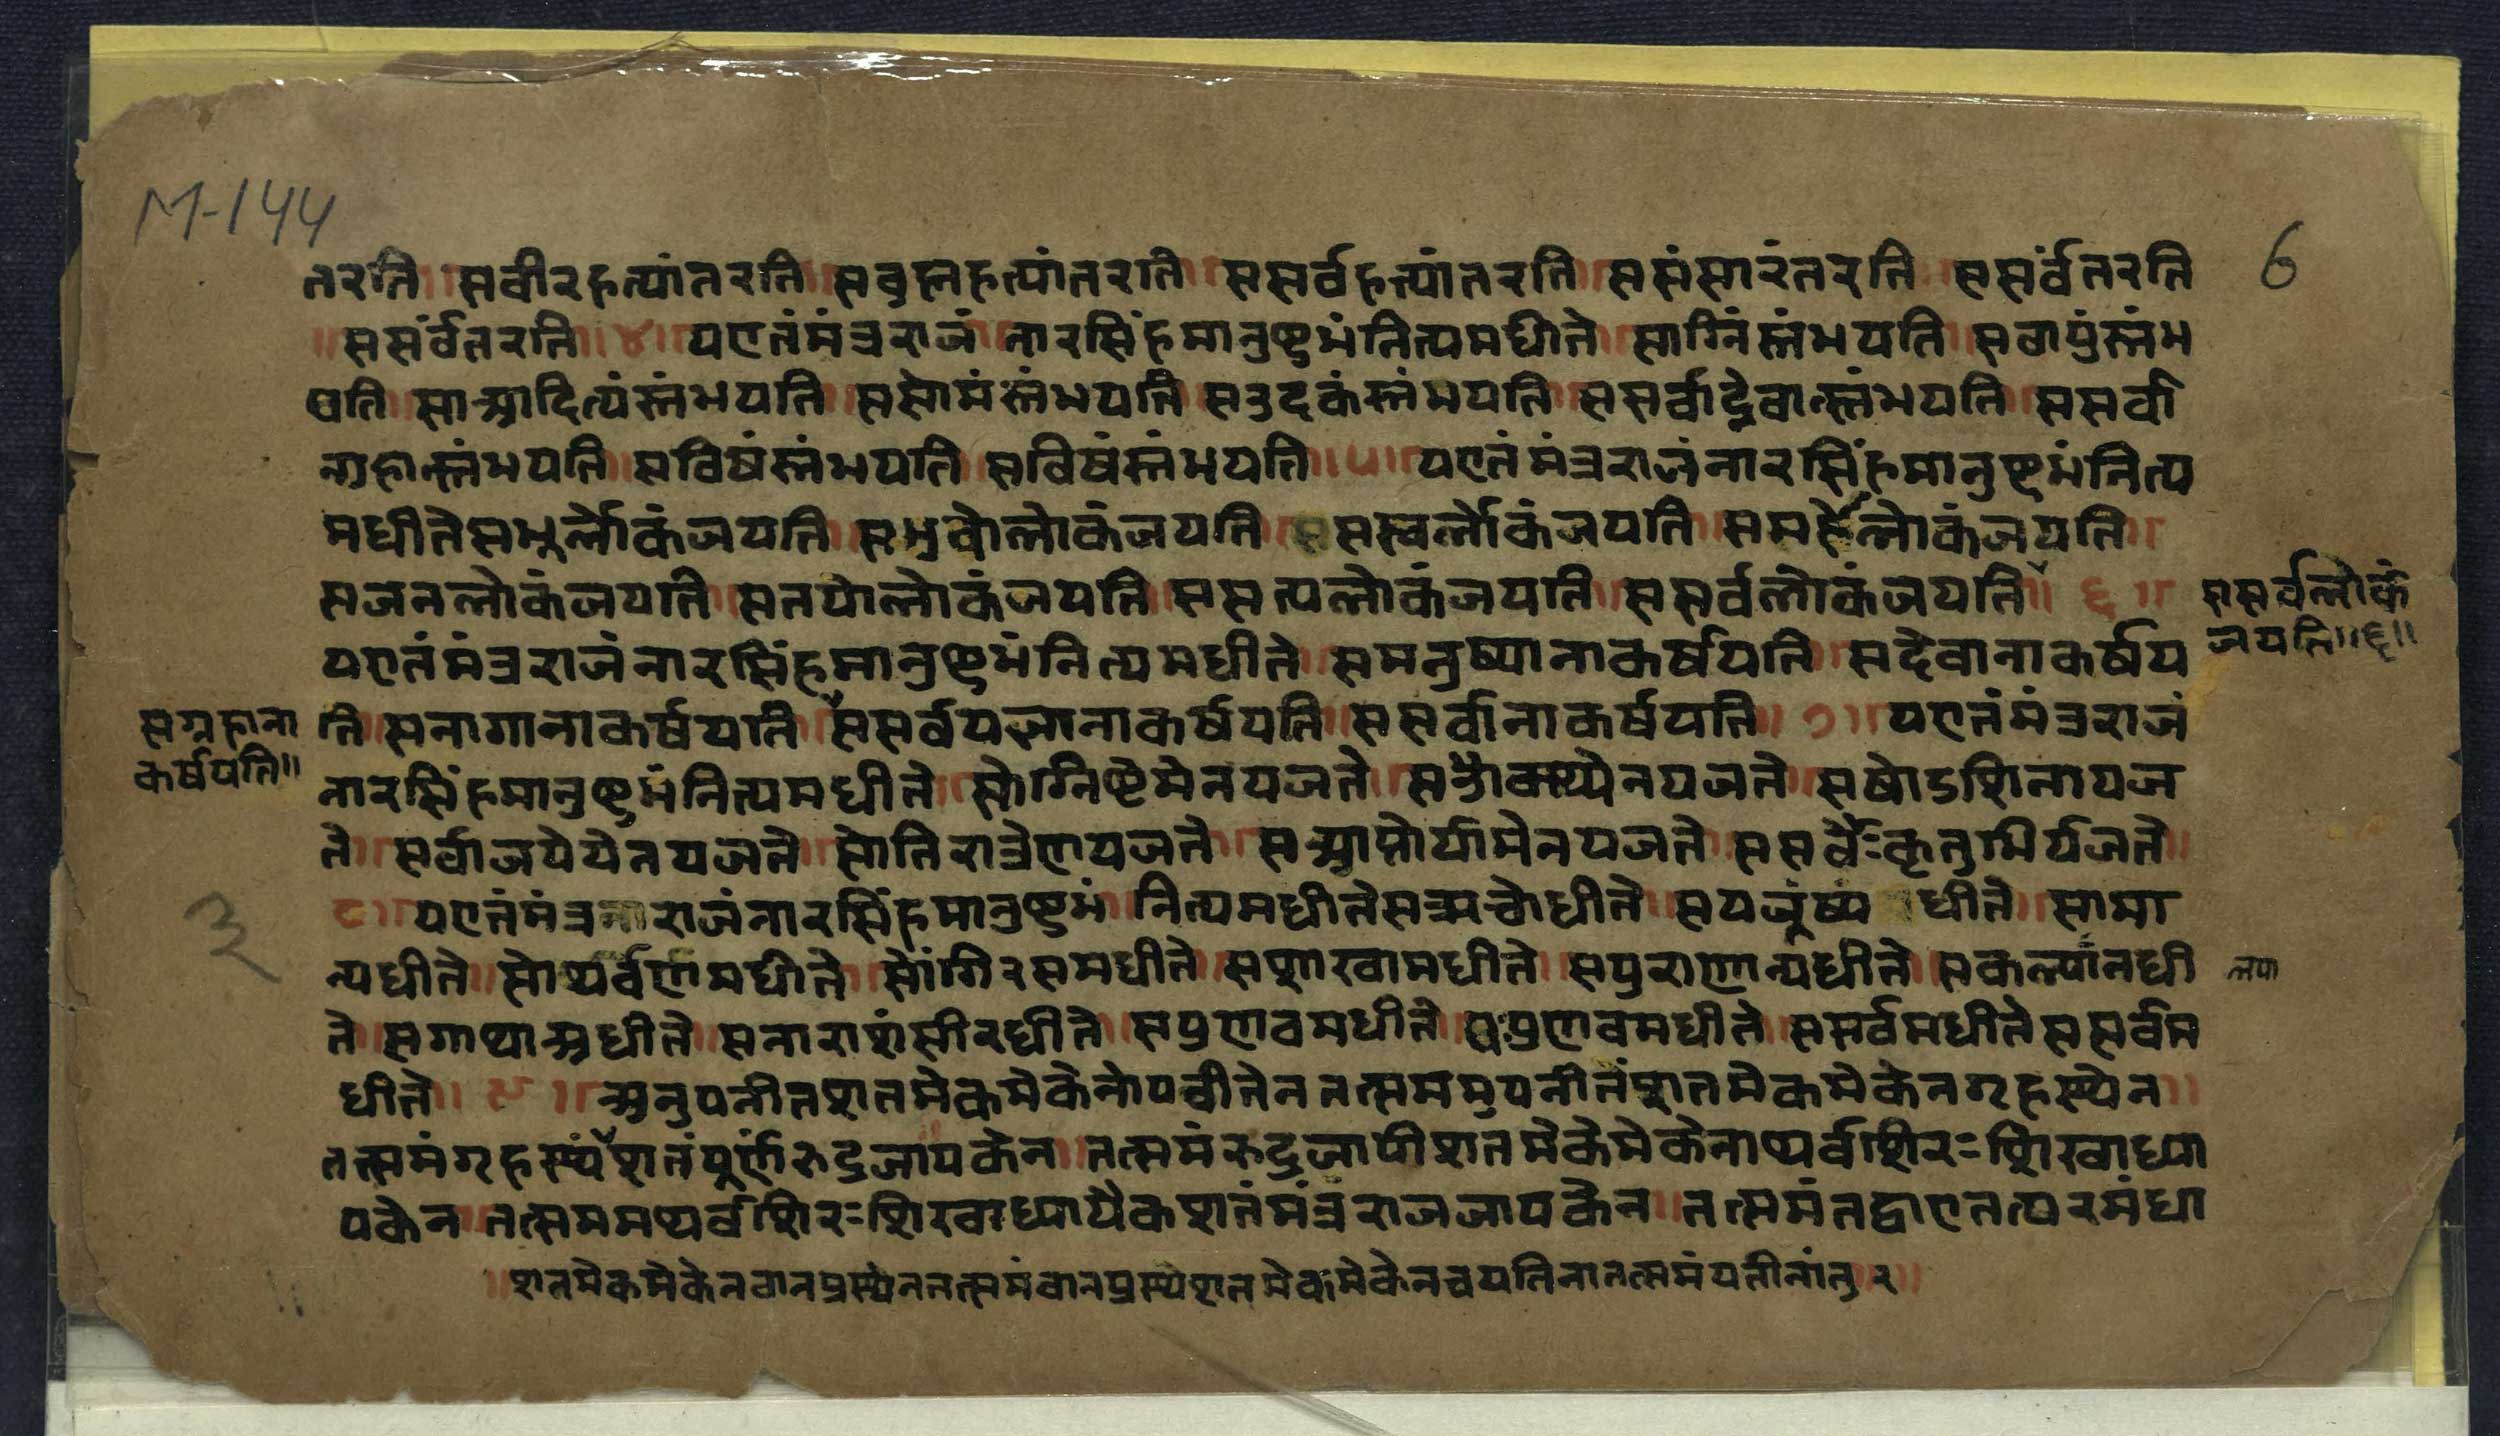 M-144
6
तरति ॥ सवीरहत्यांतरति ॥ सब्रह्महत्यांतरति ॥ ससर्वहत्यांतरति ॥ ससंसारंतरति ॥ ससर्वंतरति
॥ ससर्वंतरति ॥ ४ ॥ यएतंमंत्रराजं नारसिंहमानुष्टुभंनित्यमधीते ॥ साग्निंस्तंभयति ॥ सवायुंस्तंभ
यति ॥ साआदित्यंस्तंभयति ॥ ससोमंस्तंभयति सउदकंस्तंभयति ॥ ससर्वाद्देवात्स्तंभयति ॥ ससर्वा
न्ग्रहात्स्तंभयति ॥ सविषंस्तंभयति ॥ सविषंस्तंभयति ॥ ५ ॥ यएतंमंत्रराजंनारसिंहमानुष्टुभंनित्य
मधीतेसभुर्लोकंजयति ॥ सभुवोलोकंजयति ॥ सस्वर्लोकंजयति ॥ समहर्लोकंजयति ॥
सजनलोकंजयति ॥ सतपोलोकंजयति ॥ ससत्यलोकंजयति ॥ ससर्वलोकंजयति ॥ ६ ॥
ससर्वलोकं
जयति ॥ ६ ॥
यएतंमंत्रराजंनारसिंहमानुष्टुभंनित्यमधीते ॥ समनुष्यानाकर्षयति ॥ सदेवानाकर्षय
सग्रहाना
कर्षयति ॥
ति ॥ सनागानाकर्षयति ॥ ससर्वयज्ञानाकर्षयति ॥ ससर्वानाकर्षयति ॥ ७ ॥ यएतंमंत्रराजं
नारसिंहमानुष्टुभंनित्यमधीते ॥ सोग्निष्टोमेनयजते ॥ सउक्थ्येनयजते ॥ सषोडशिनायज
ते ॥ सर्वाजपेयेनयजते ॥ सोतिरात्रेणयजते ॥ सआप्तोर्यामेनयजते ॥ ससर्वैःकृतुभिर्यजते ॥
८ ॥ यएतंमंत्रनाराजंनारसिंहमानुष्टुभं ॥ नित्यमधीतेसऋचोधीते ॥ सयजुंष्य धीते ॥ सामा
३
न्यधीते ॥ सोथर्वणमधीते ॥ सोंगिरसमधीते ॥ सशाखामधीते ॥ सपुराणान्यधीते ॥ सकल्पानधी
ल्पा
ते ॥ सगाथाअधीते ॥ सनाराशंसीरधीते ॥ सप्रणवमधीते ॥ सप्रणवमधीते ॥ ससर्वमधीतेससर्वम
धीते ॥ ९ ॥ अनुपनीतशतमेकमेकेनोपवीतेनतत्सममुपनीतंशतमेकमेकेनगृहस्थेन ॥
तत्समंगृहस्थंशतंपूर्णंरुद्रजापकेन ॥ तत्समंरुद्रजापीशतमेकेमेकेनाथर्वशिरःशिखाध्या
पकेन ॥ तत्सममथर्वशिरःशिखाध्यापैकशतंमंत्रराजजापकेन ॥ तत्समंतद्वाएतत्परमंधा
॥ शतमेकमेकेनवानप्रस्थेनतत्समंवानप्रस्थेशतमेकमेकेनचयतिनातत्समंयतीनांतु र ॥